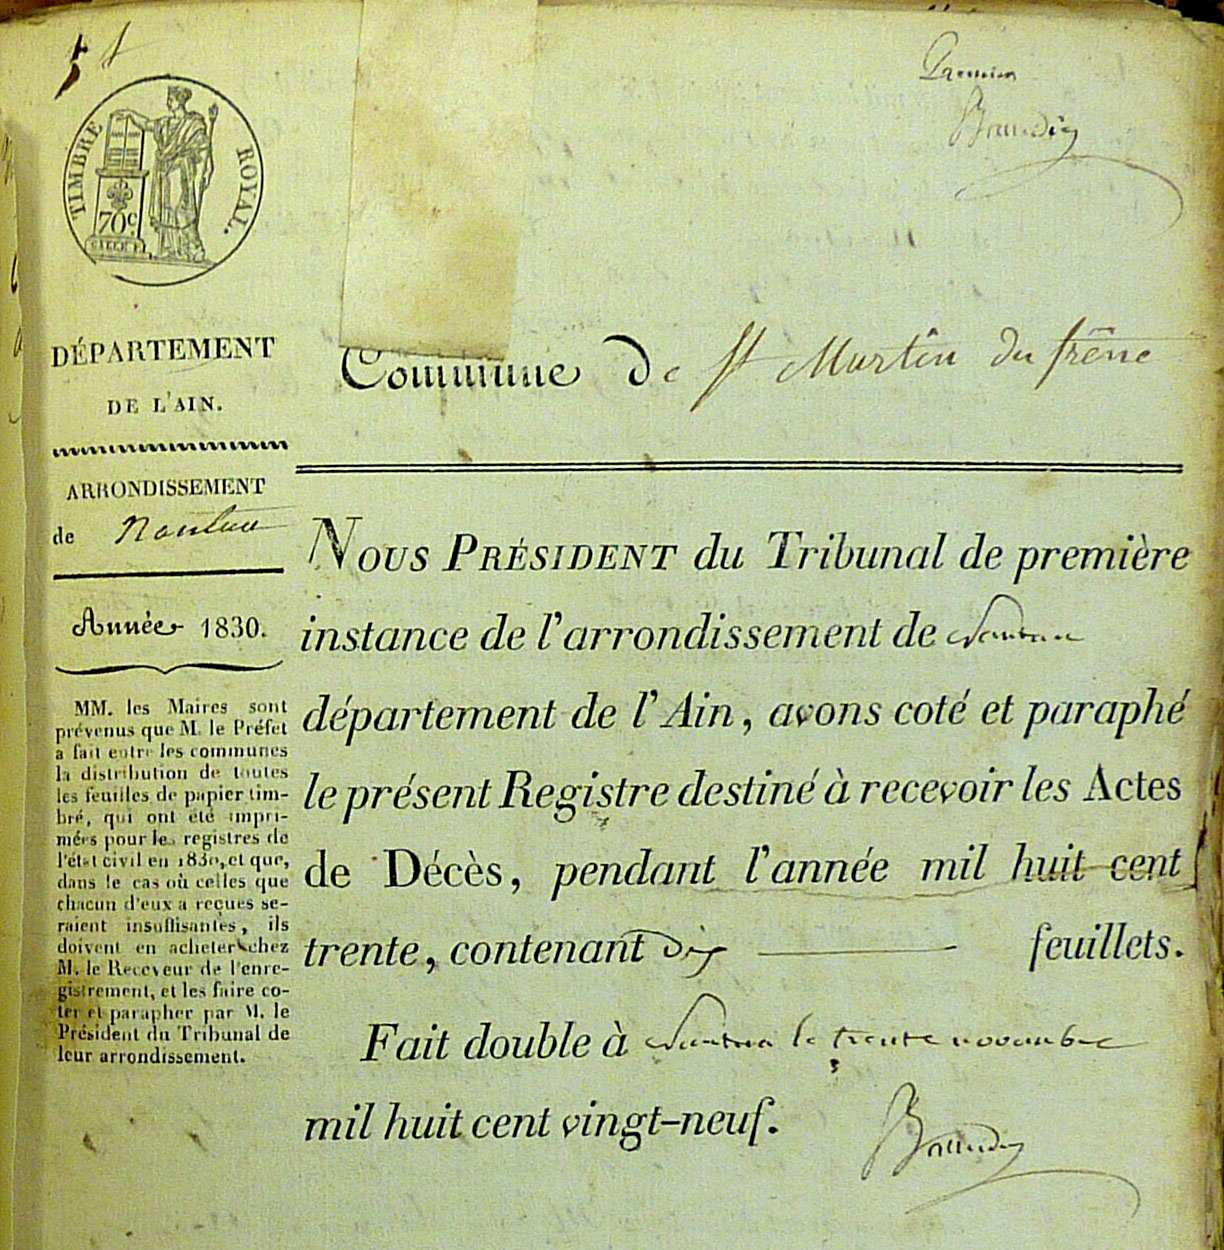 Premier
TIMBRE ROYAL.
70c
DÉPARTEMENT
DE L'AIN.
Commune de St Martin du frêne
ARRONDISSEMENT
de Nantua
Année 1830.
MM. les Maires sont
prévenus que M. le Préfet
a fait entre les communes
la distribution de toutes
les feuilles de papier tim-
bré, qui ont été impri-
mées pour les registres de
l'état civil en 1830, et que,
dans le cas où celles que
chacun d'eux a reçues se-
raient insuffisantes, ils
doivent en acheter chez
M. le Receveur de l'enre-
gistrement, et les faire co-
ter et parapher par M. le
Président du Tribunal de
leur arrondissement.
NOUS PRÉSIDENT du Tribunal de première
instance de l'arrondissement de Nantua
département de l'Ain, avons coté et paraphé
le présent Registre destiné à recevoir les Actes
de Décès, pendant l'année mil huit cent
trente, contenant dix feuillets.
Fait double à Nantua le trente novembre
mil huit cent vingt-neuf.